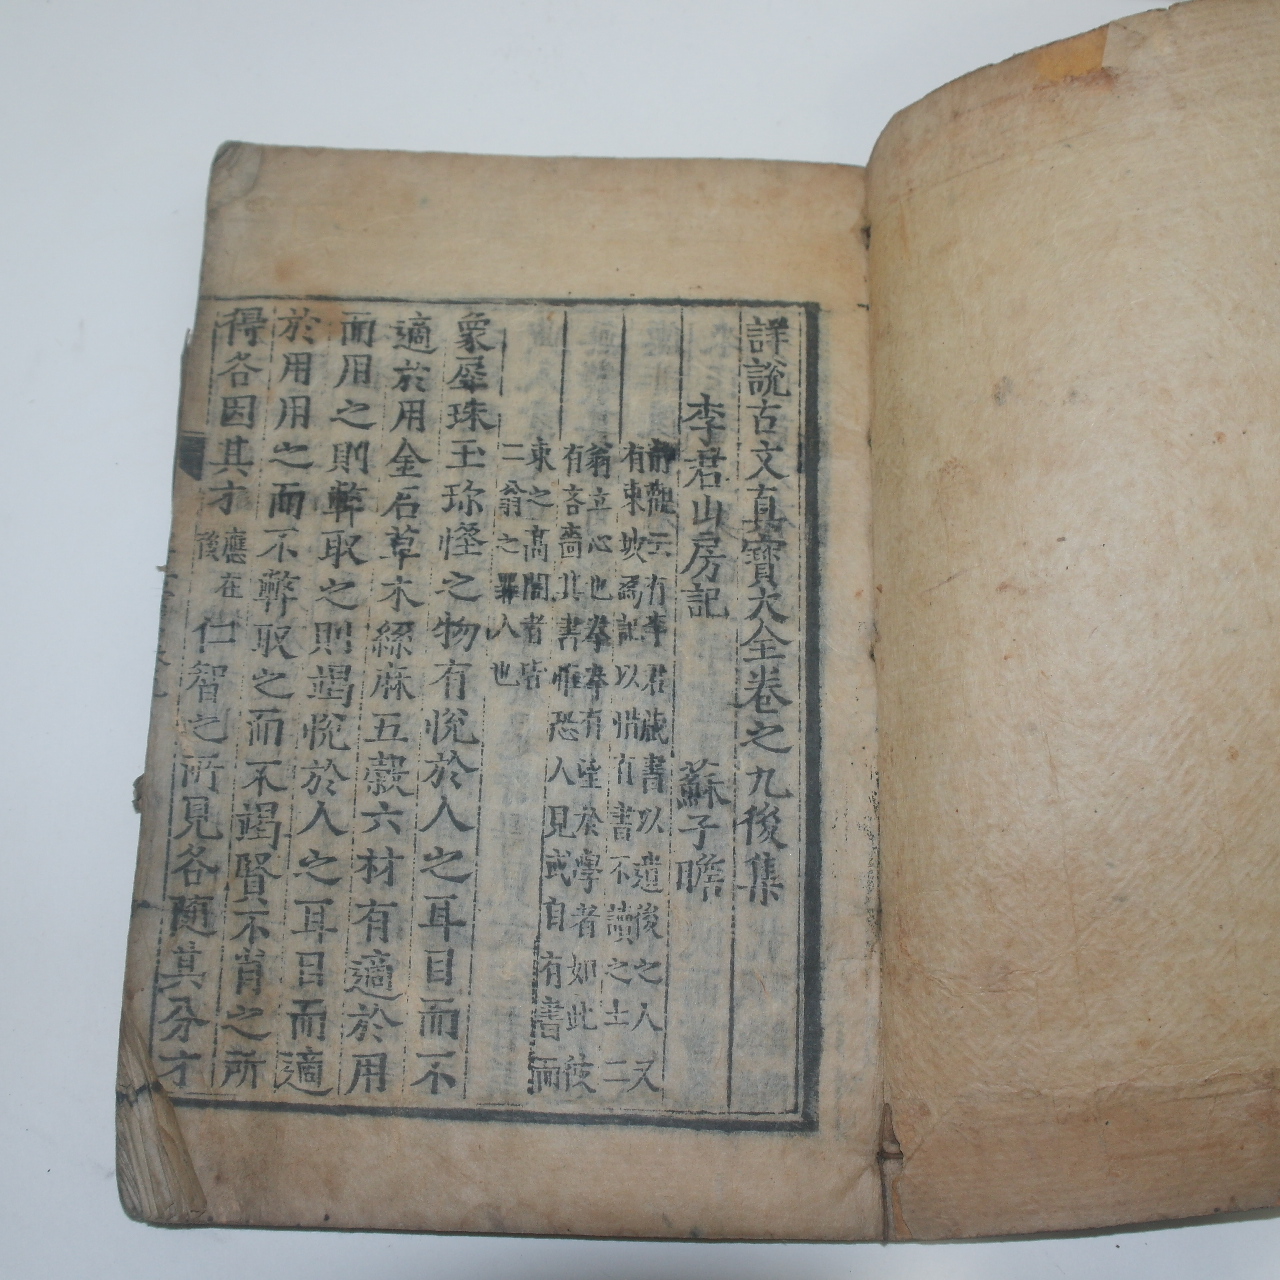 詳說古文真寶大全卷之九後集
李君山房記 蘇子瞻
有李君藏書以遺後之人又
有東坡爲記以惜有書不讀之士二
翁立心也拳拳有望於學者如此使
有吝嗇其書惟恐人見或自有書而
束之高閣者皆
二翁之罪人也
象犀珠玉珍怪之物有悅於人之耳目而不
適於用金石草木絲麻五穀六材有適於用
而用之則弊取之則竭悅於人之耳目而適
於用用之而不弊取之而不竭賢不肖之所
得各因其才應在後仁智之所見各隨其分才